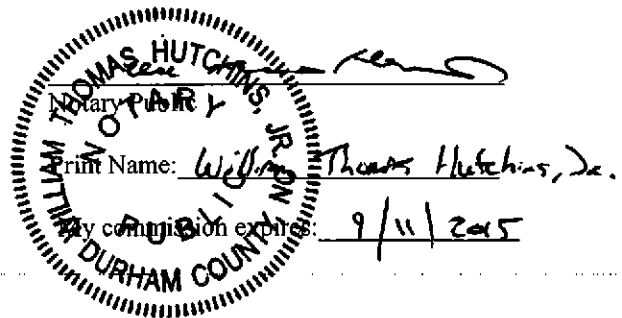 WILLIAM THOMAS HUTCHINS, JR.
NOTARY
PUBLIC
DURHAM COUNTY, NC
Notary Public
Print Name: William Thomas Hutchins, Jr.
My commission expires: 9/11/2015